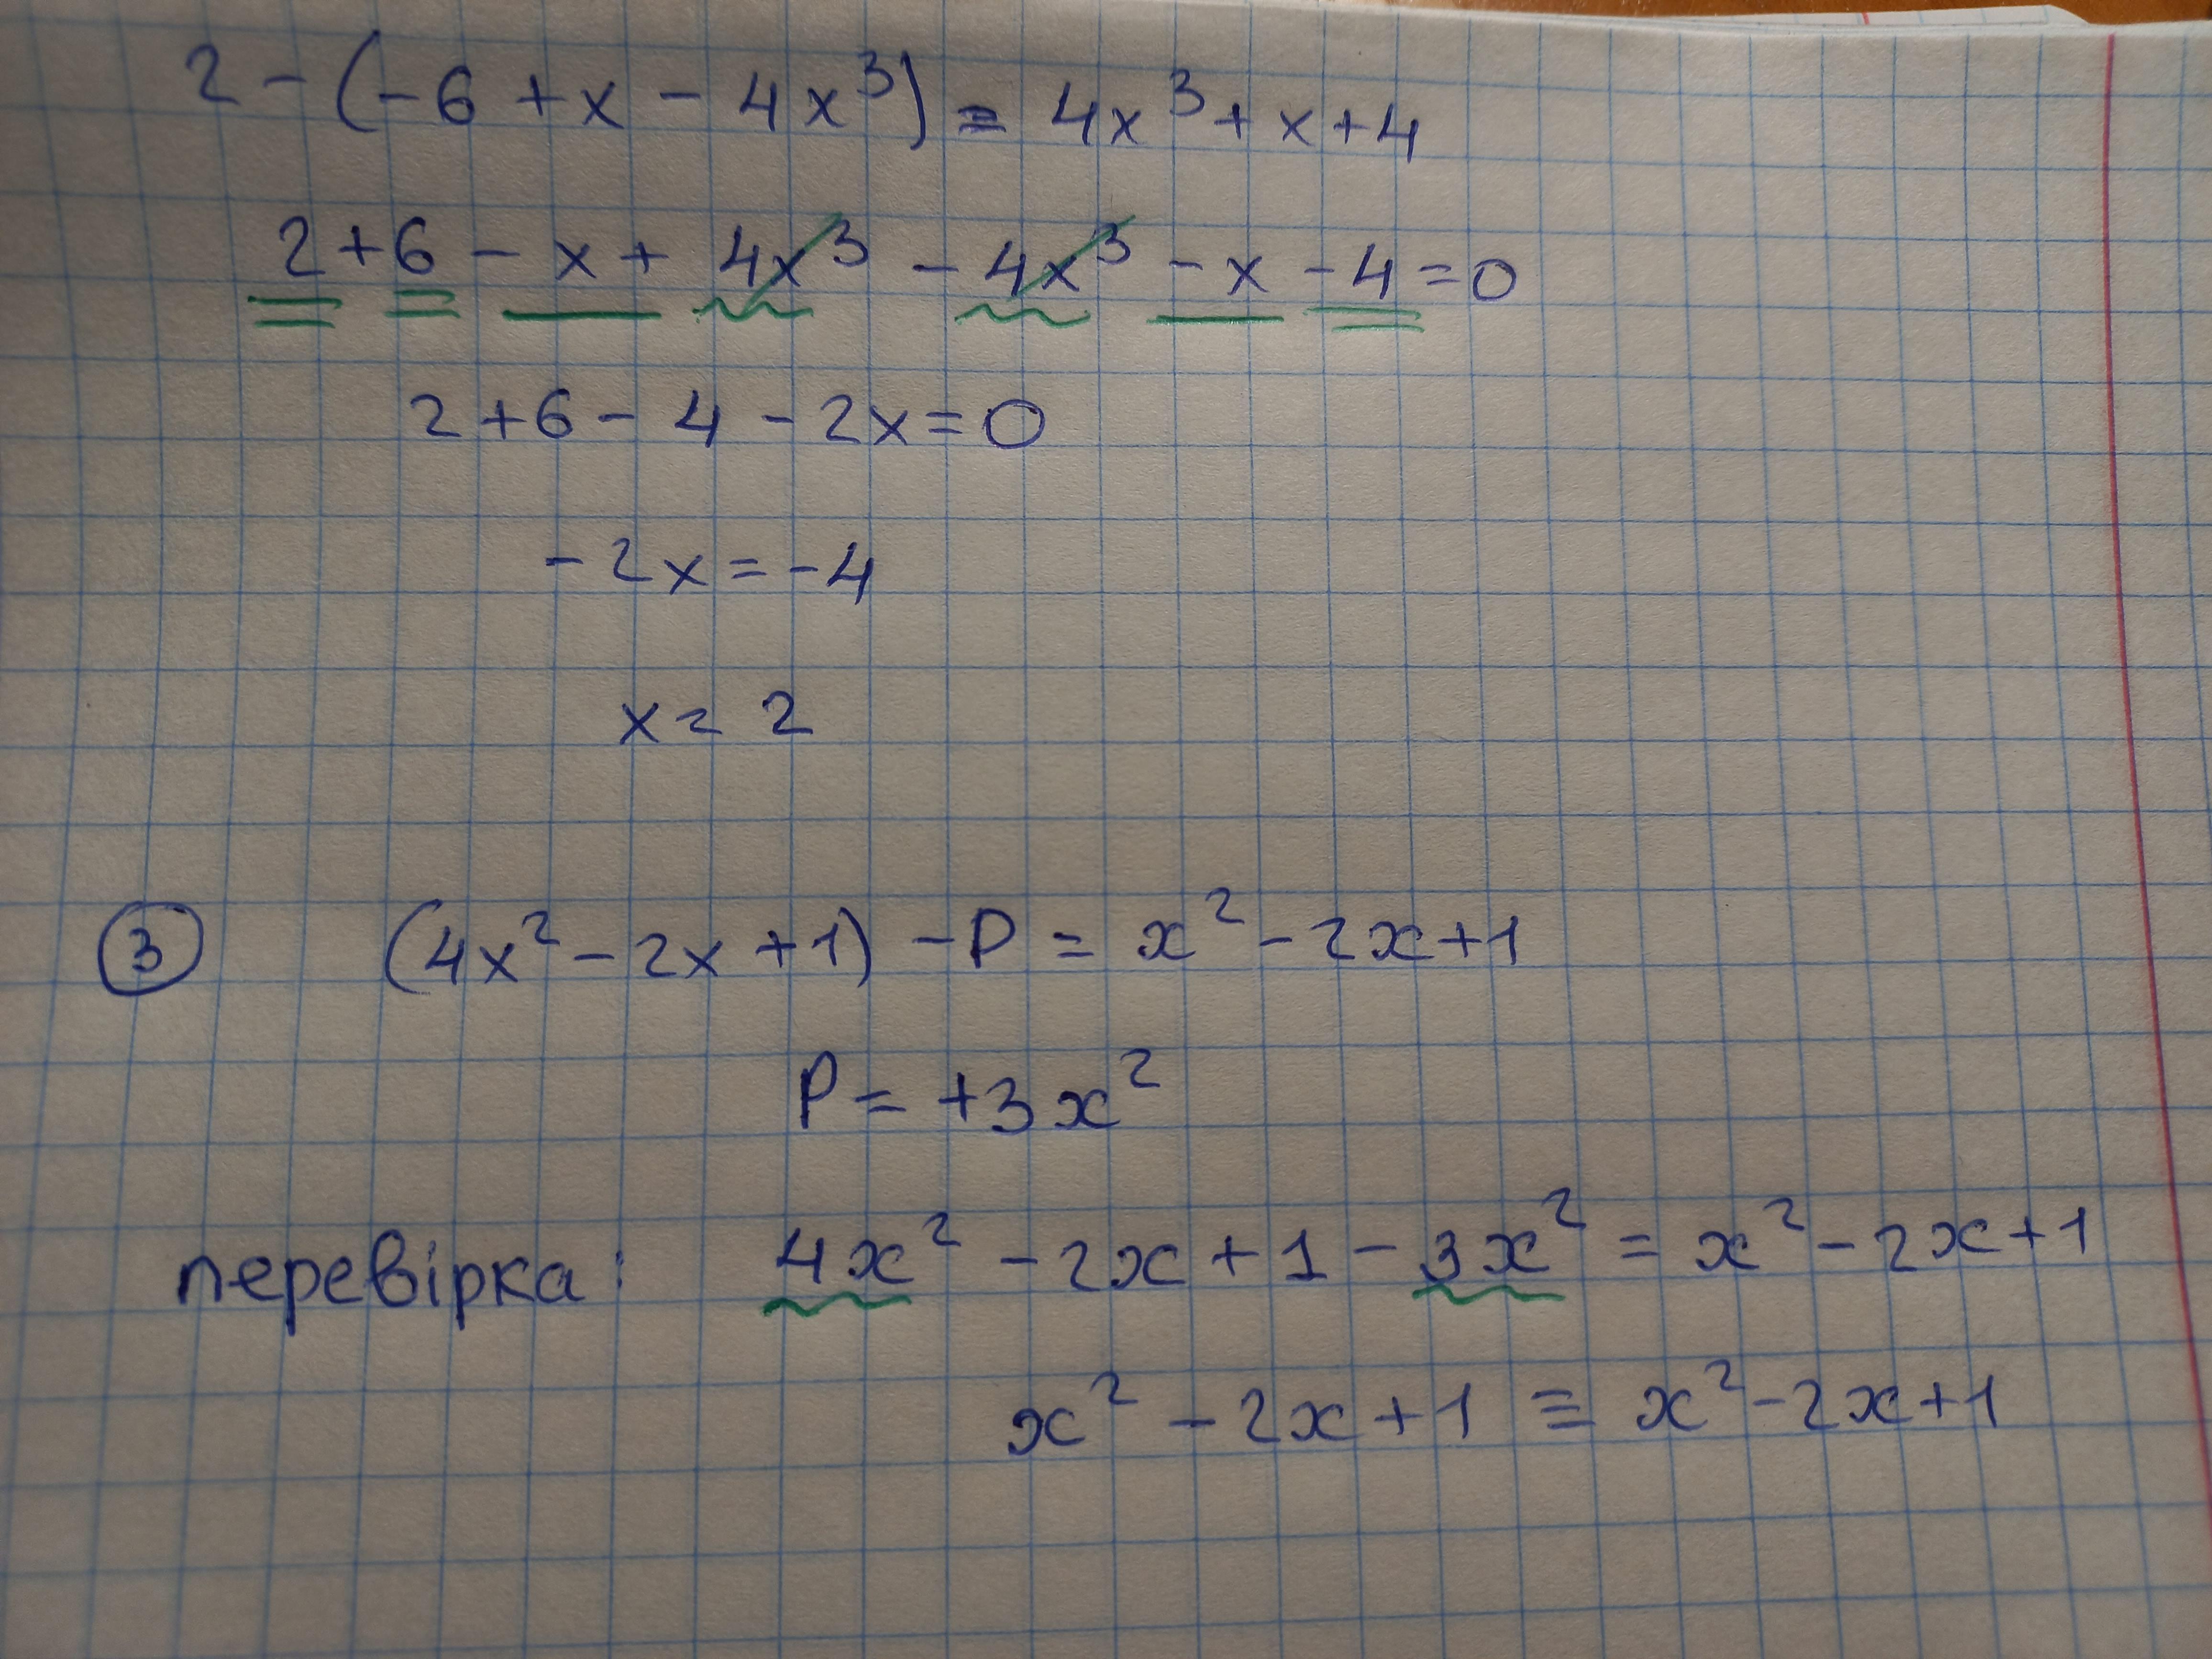 2 - (-6 + x - 4x³) = 4x³ + x + 4
2 + 6 - x + 4x³ - 4x³ - x - 4 = 0
2 + 6 - 4 - 2x = 0
-2x = -4
x = 2
3 (4x² - 2x + 1) - P = x² - 2x + 1
P = +3x²
перевірка: 4x² - 2x + 1 - 3x² = x² - 2x + 1
x² - 2x + 1 ≡ x² - 2x + 1